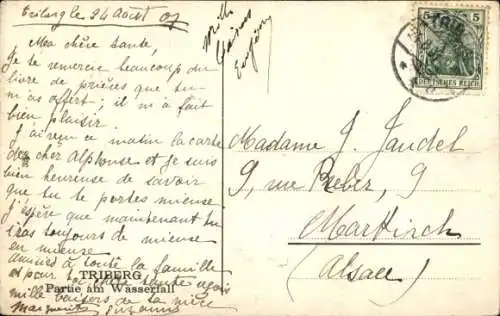 Triberg le 24 Août 07
Ma chère tante,
Je te remercie beaucoup du
livre de prières que tu
m'as offert; il m'a fait
bien plaisir
J'ai reçu ce matin la carte
de cher Alphonse et je suis
bien heureuse de savoir
que tu te portes mieux
J'espère que maintenant tu
iras toujours de mieux
en mieux
amitiés à toute la famille
et pour toi chère tante
mille baisers de ta nièce
Marguerite Suzanne
TRIBERG
Partie am Wasserfall
5 5
DEUTSCHES REICH
Madame J. Jaudel
9, rue Reber, 9
Markirch
(Alsace)